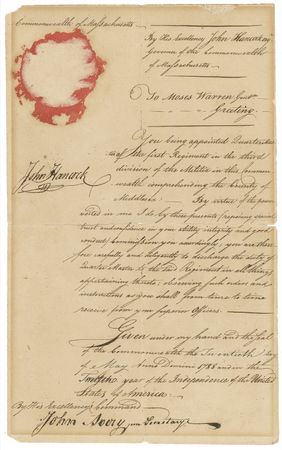 Commonwealth of Massachusetts
By His Excellency John Hancock
Governor of the Commonwealth
of Massachusetts
To Moses Warren Gent
Greeting
You being appointed Quarter
of the first Regiment in the third
division of the Militia in this Common
wealth comprehending the County of
Middlesex By virtue of the power
vested in me I do by these presents (reposing special
trust and confidence in your ability, integrity and good
conduct) Commission you accordingly; you are there
fore carefully and diligently to discharge the duty of
Quarter Master of the said Regiment in all things
appertaining thereto; observing such orders and
instructions as you shall from time to time
receive from your superior Officers.
John Hancock
Given under my hand and the Seal
of the Commonwealth the Twentieth day
of May Anno Domini 1788 and in the
Twelfth year of the Independence of the United
States of America.
By His Excellency's Command
John Avery jun Secretary